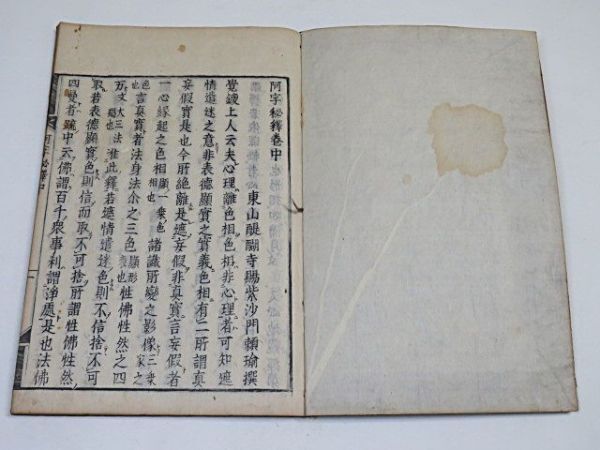 阿字秘釋卷中
東山醍醐寺賜紫沙門頼瑜撰
覺鑁上人云夫心理離色相色相非心理者可知遮
情遣迷之意非表德顯實之實義色相有二所謂真
妄假實是也今所絶離是遮妄假非真實言妄假者
一心縁起之色相顯一乘色也諸識所變之影像三乘家之
色也言真實者法身法尒之三色顯形表也性佛性然之四
万文大三法羯也准此釋若遮情遣迷色則不信捨不可
取若表德顯實色則信而取不可捨所謂性佛性然
四曼者䟽中云佛謂百千衆事利謂淨處是也法佛
阿字秘釋中